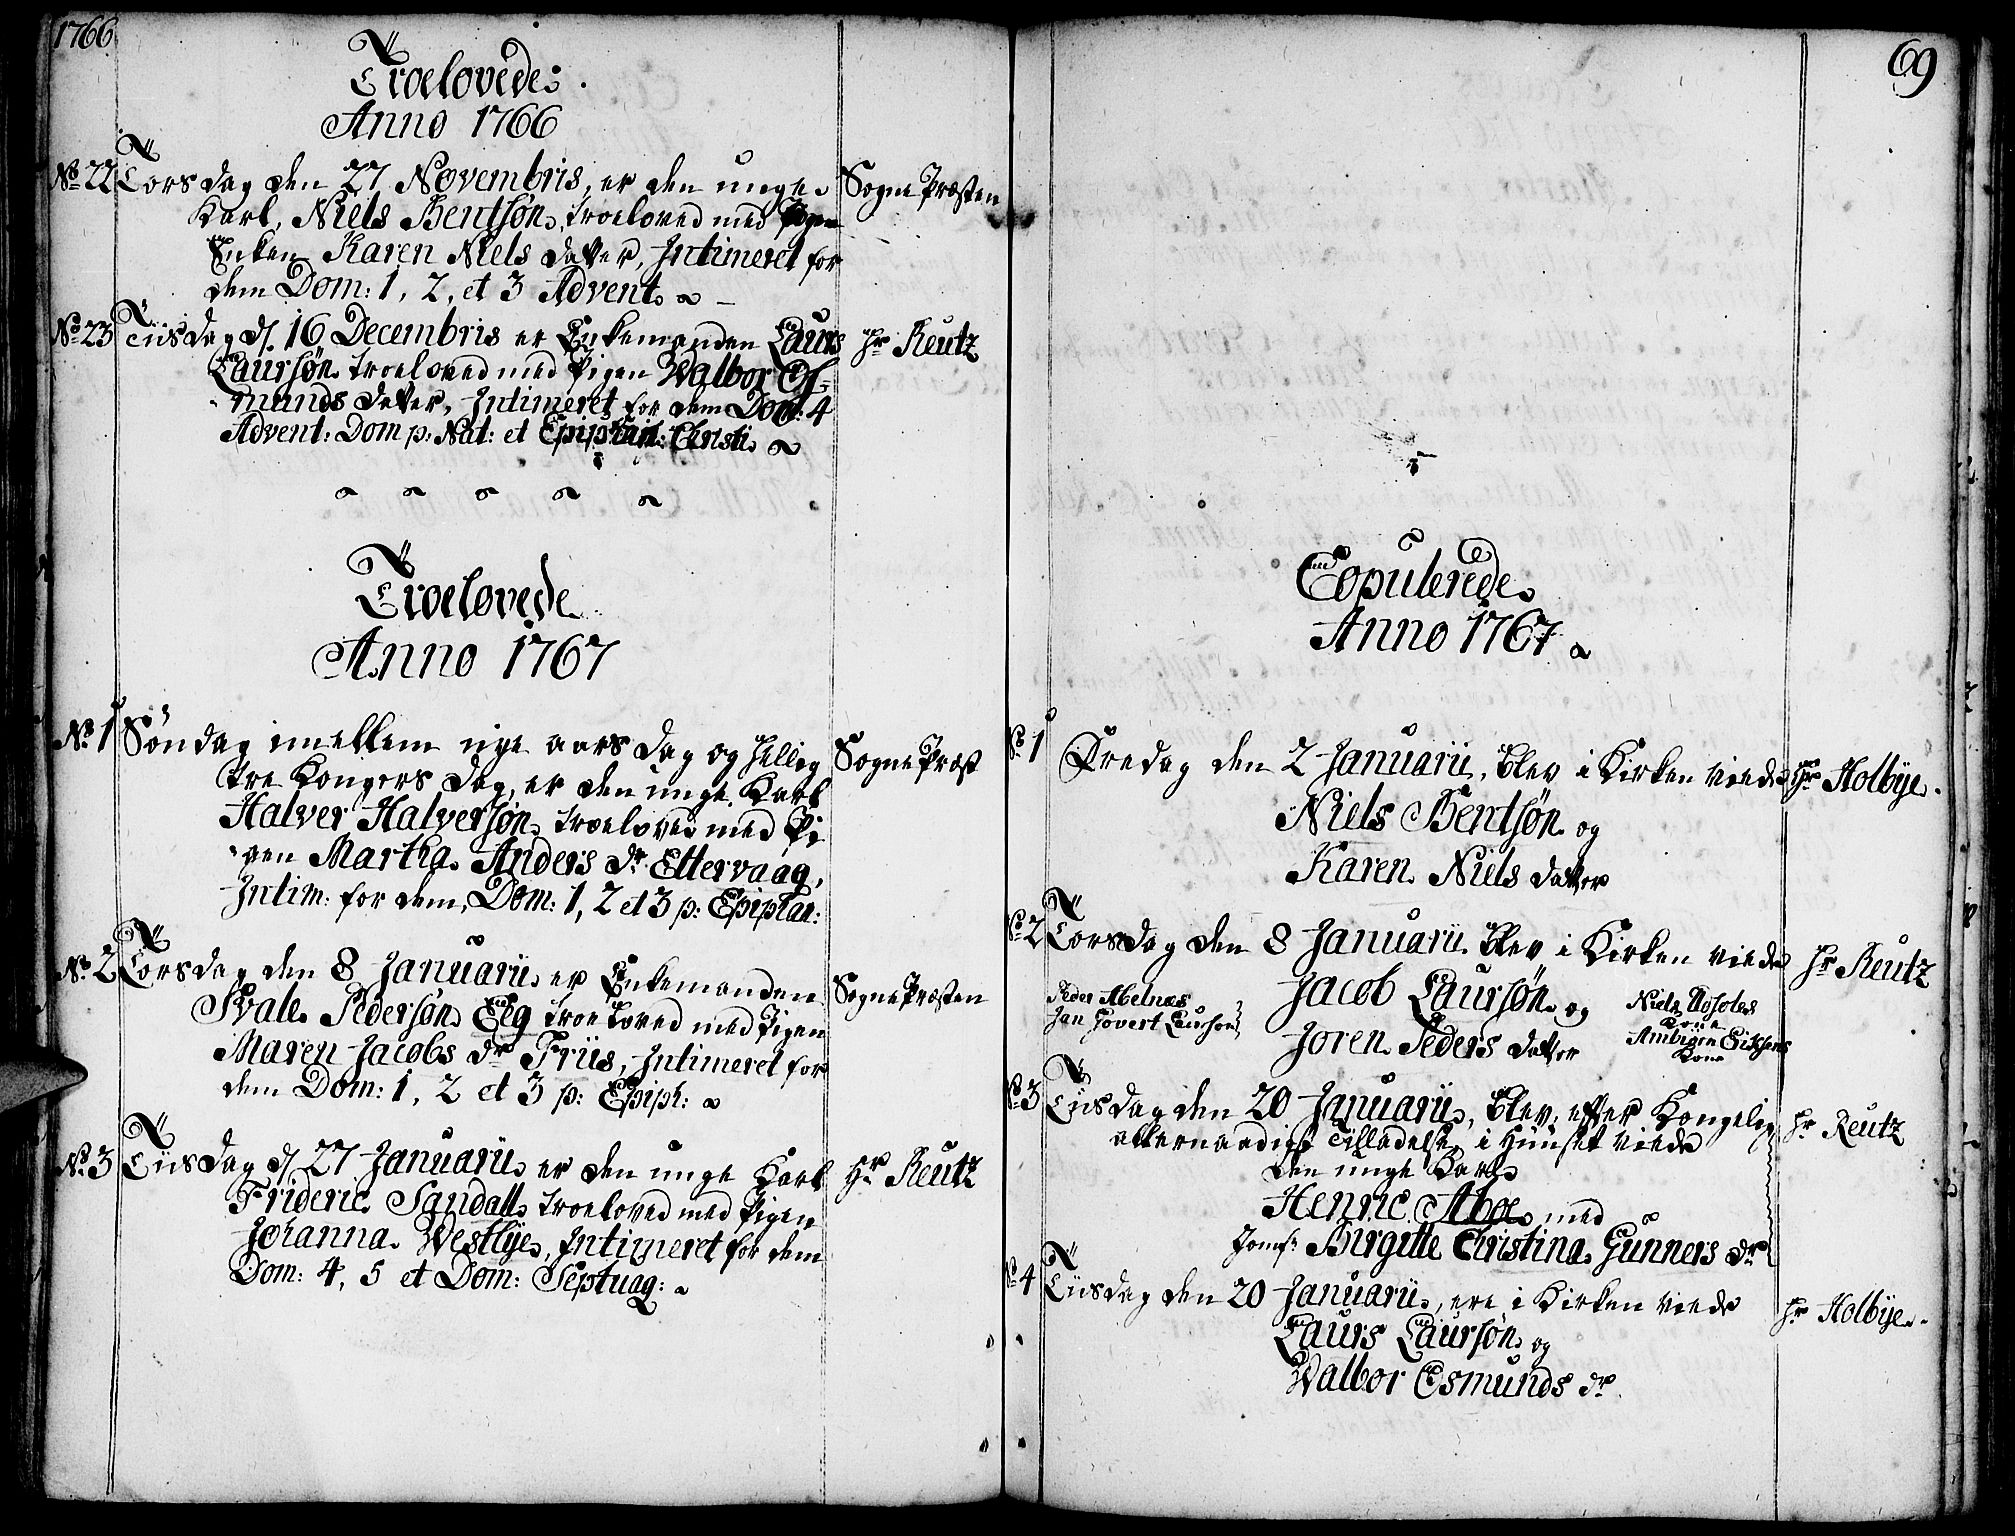 1766
Troelovede
Anno 1766
No 22 Torsdag den 27 Novembris, er den unge Sogne Præsten
Karl, Niels Bentsøn, troeloved med
Enken Karen Niels datter, Intimeret for
dem Dom: 1, 2, et 3 Advent.
No 23 Tiisdag d. 16 Decembris er Enkemanden Laurs Hr Reutz
Laursøn troeloved med Pigen Walbor Es-
munds datter, Intimeret for dem Dom: 4
Advent: Dom p: Nat: et Epiphan: Christi.
Troelovede
Anno 1767
No 1 Söndag imellem nye aars dag og hellig Sogne Præst
tre Kongers dag, er den unge Karl
Halver Halversøn troeloved med Pi
gen Martha Anders dr Ettervaag,
Intim: for dem, Dom: 1, 2 et 3 p: Epiphan:
No 2 Torsdag den 8 Januarii er Enkemanden Sogne Præsten
Svale Pedersøn Eeg troeloved med Pigen
Maren Jacobs dr Friis, Intimeret for
dem Dom: 1, 2 et 3 p: Epiph:
No 3 Tiisdag d. 27 Januarii er den unge Karl Hr Reutz
Frideric Sandall troeloved med Pigen
Johanna Westbye, Intimeret for dem
Dom: 4, 5 et Dom: Septuag:
69
Copulerede
Anno 1767
No 1 Fredag den 2 Januarii, blev i Kirken viede Hr Holbye.
Niels Bentsøn og
Karen Niels datter
No 2 Torsdag den 8 Januarii blev i Kirken viede Hr Reutz
Peder Abelnæs Jacob Laursøn og Niels
Jan Govert Laursøn Joren Peders datter Kone
Kone
No 3 Tiisdag den 20 Januarii, blev, efter Kongelig Hr Reutz
allernaadigst Tilladelse i Huuset viede
den unge Karl
Henric Aboe med
Jomf: Birgitte Christina Gunners dr
No 4 Tiisdag den 20 Januarii, ere i Kirken viede Hr Holbye.
Laurs Laursøn og
Walbor Esmunds dr